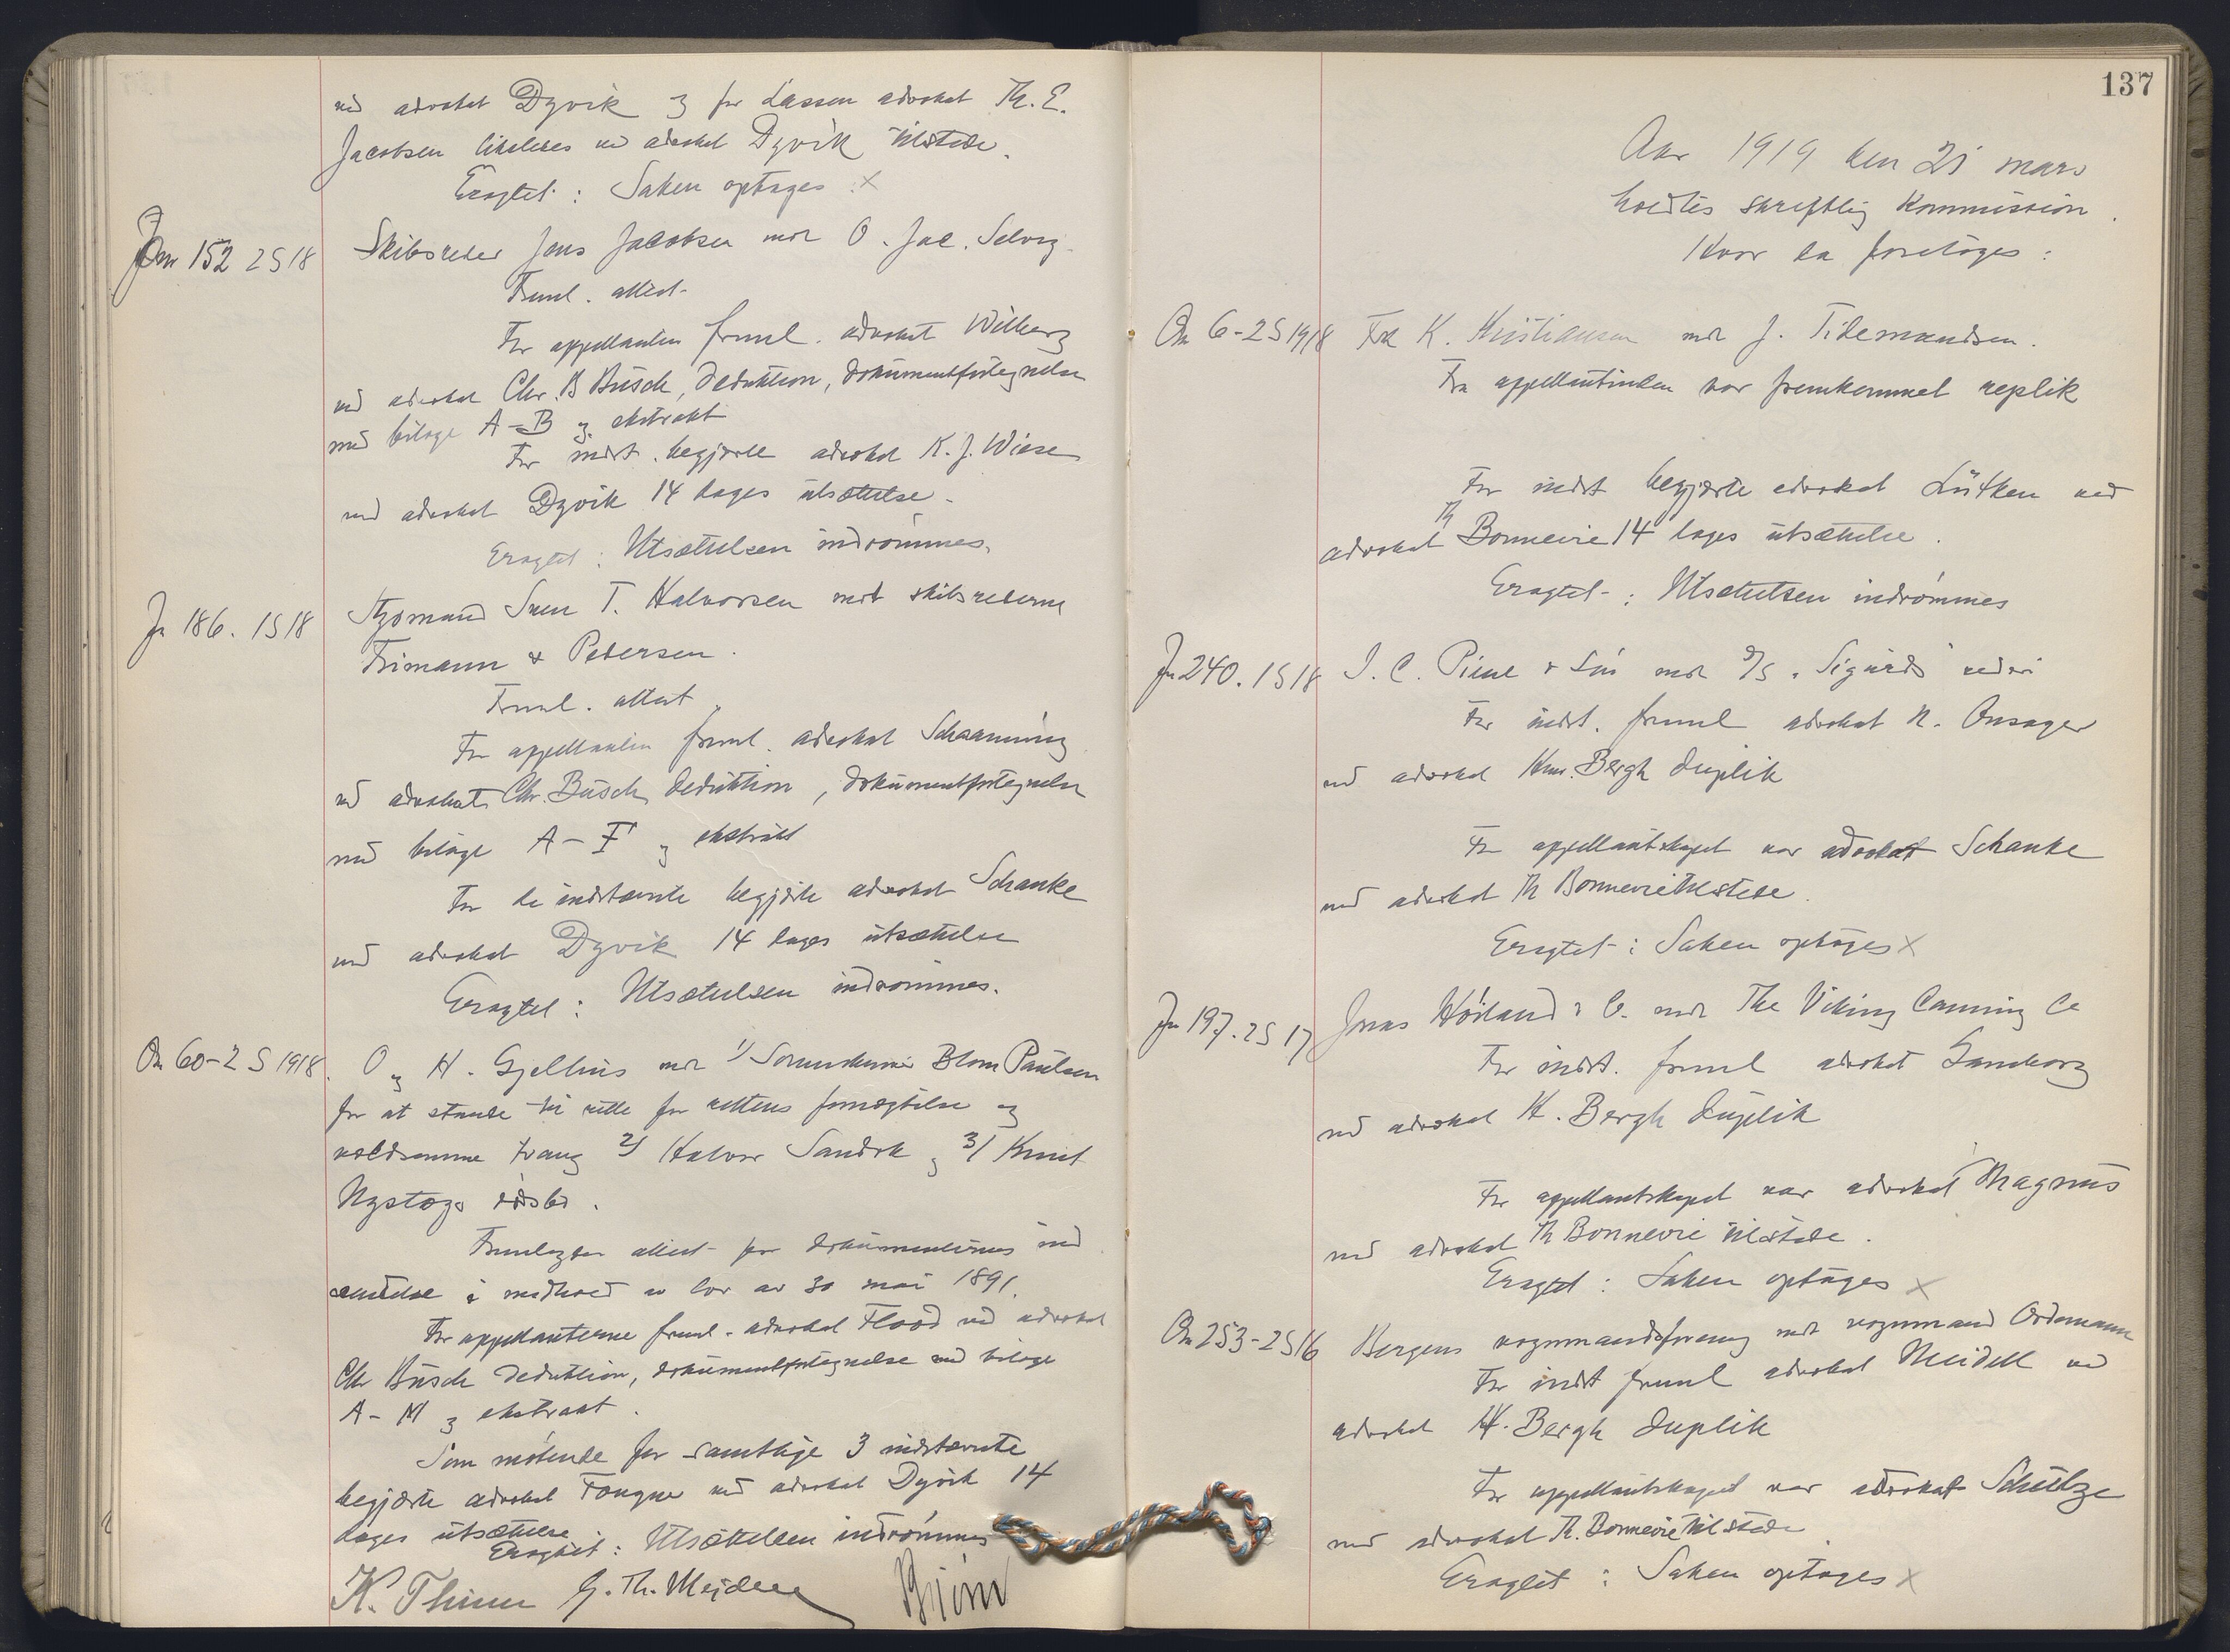 ved advokat Dyvik og for Lassen advokat Th. E.
Jacobsen likeledes ved advokat Dyvik tilstede.
Eragtet: Saken optages X
Jnr 152 2 S 18
Skibsreder Jens Jacobsen mot O. Jac. Selvig
Freml. attest
For appellanten freml. advokat Wilberg
ved advokat Chr. B Büsch, Deduktion, dokumentfortegnelse
med bilage A-B og ekstrakt
For indst. begjærte advokat K. J. Wiese
ved advokat Dyvik 14 dages utsættelse.
Eragtet: Utsættelsen indrømmes.
Jn 186. 1 S 18
Styrmand Sven T. Halvorsen mot skibsrederne
Frimann & Pedersen.
Freml. attest
For appellanten freml. advokat Schaanning
ved advokat Chr. Büsch, deduktion, dokumentfortegnelse
med bilage A-F og ekstrakt
For de indstævnte begjærte advokat Schanke
ved advokat Dyvik 14 dages utsættelse
Eragtet: Utsættelsen indrømmes.
On 60-2 S 1918.
O og H. Gjellhus mot 1/ Blom Paulsen
for at stande til rette for rettens fornægtelse og
voldsomme tvang 2/ Halvor Sandok og 3/ Knut
Nystøgs
Fremlagdes attest for dokumenternes ind
sendelse i medhold av lov av 30 mai 1891.
For appellanterne freml. advokat Flood ved advokat
Chr Büsch Deduktion, dokumentfortegnelse med bilage
A-M og ekstrakt.
Som møtende for samtlige 3 indstævnte
begjærte advokat Fougner ved advokat Dyvik 14
dages utsættelse.
Eragtet: Utsættelsen indrømmes
K. Thinn G. Th. Mejdell
137
Aar 1919 den 21 mars
holdtes skriftlig Kommission.
Hvor da foretoges:
On 6-2 S 1918
Frk K. Kristiansen mot J. Tidemandsen.
Fra appellantinden var fremkommet replik
For indst begjærte advokat Lütken ved
advokat Th Bonnevie 14 dages utsættelse.
Eragtet: Utsættelsen indrømmes
Jn 240. 1 S 18
I. C. Piene & Søn mot D/S "Sigurds" rederi
For indst. freml advokat N. Onsager
ved advokat Hm. Bergh duplik
For appellantskapet var advokat Schanke
ved advokat Th Bonnevie tilstede.
Eragtet: Saken optages X
Jn 197. 2 S 17
Jonas Høiland & Co. mot The Viking Canning Co
For indst. freml advokat Sandberg
ved advokat H. Bergh duplik
For appellantskapet var advokat Magnus
ved advokat Th Bonnevie tilstede.
Eragtet: Saken optages X
On 253-2 S 16
Bergens vognmandsforening mot vognmand Ordemann
For indst freml advokat Meidell ved
advokat H. Bergh duplik
For appellantskapet var advokat Schütze
ved advokat Th. Bonnevie tilstede
Eragtet: Saken optages X